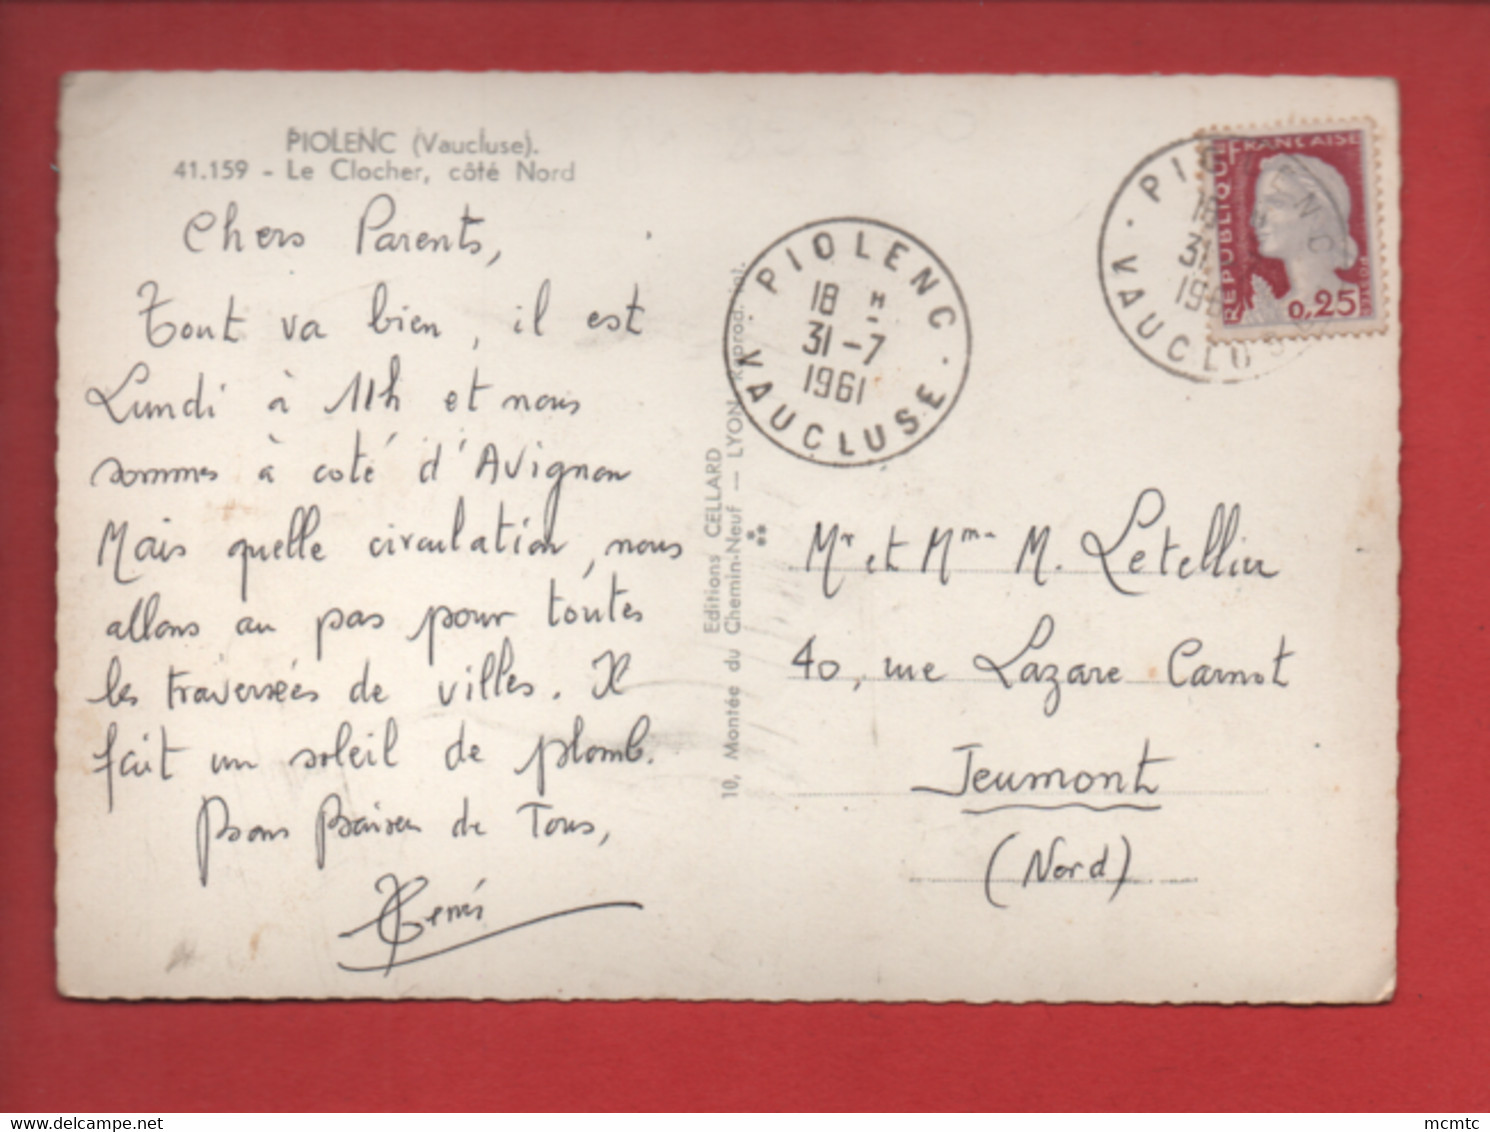 PIOLENC (Vaucluse).
41.159 - Le Clocher, côté Nord
Chers Parents,
Tout va bien, il est
Lundi à 11h et nous
sommes à coté d'Avignon
Mais quelle circulation, nous
allons au pas pour toutes
les traversées de villes. Il
fait un soleil de plomb.
Bons Baisers de Tous,
Editions CELLARD
10, Montée du Chemin-Neuf — LYON Reprod. int.
PIOLENC
18 H
31-7
1961
VAUCLUSE
PIOLENC
18
31
196
VAUCLUSE
REPUBLIQUE FRANÇAISE
POSTES
0,25
Mr et Mme M. Letellier
40, rue Lazare Carnot
Jeumont
(Nord)
mcmtc